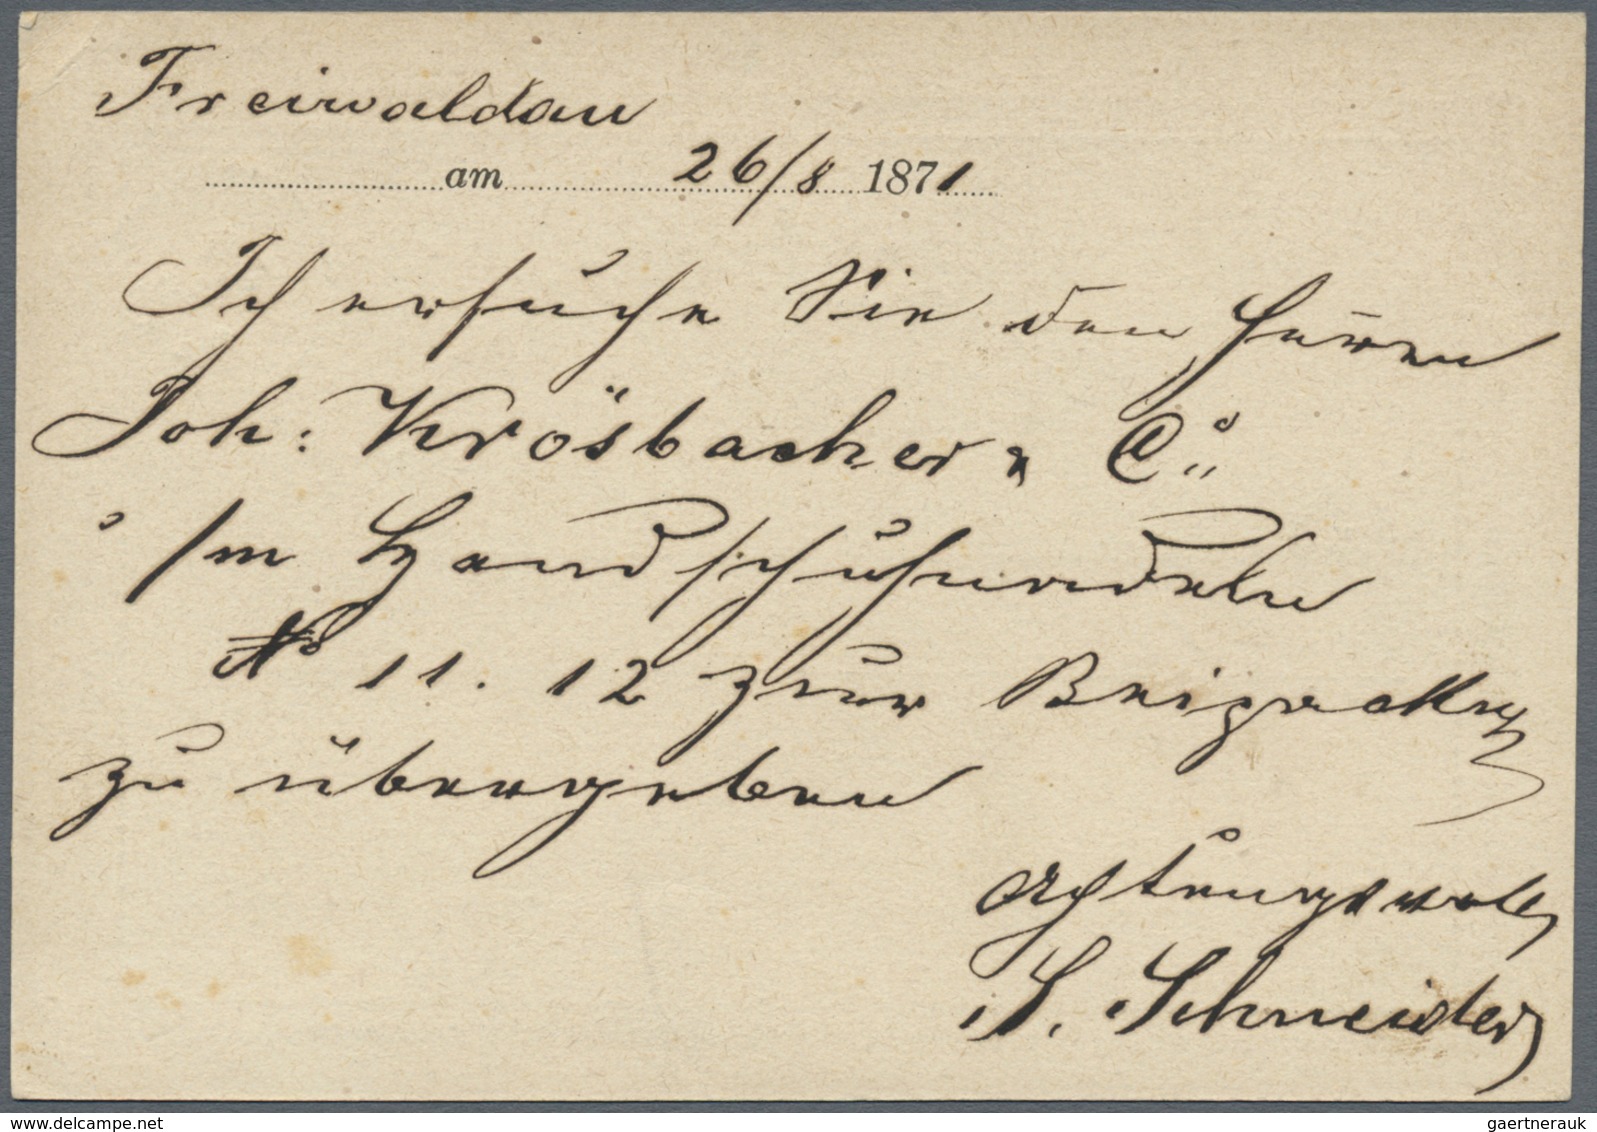 Freiwaldau
am 26/8 1871
Ich ersuche Sie den Herren
Joh: Krösbacher & Co.
im Handschuhnadeln
No 11. 12 zur Beipackung
zu übergeben
Achtungsvoll
S. Schneider
gaertnerauk
www.delcampe.net